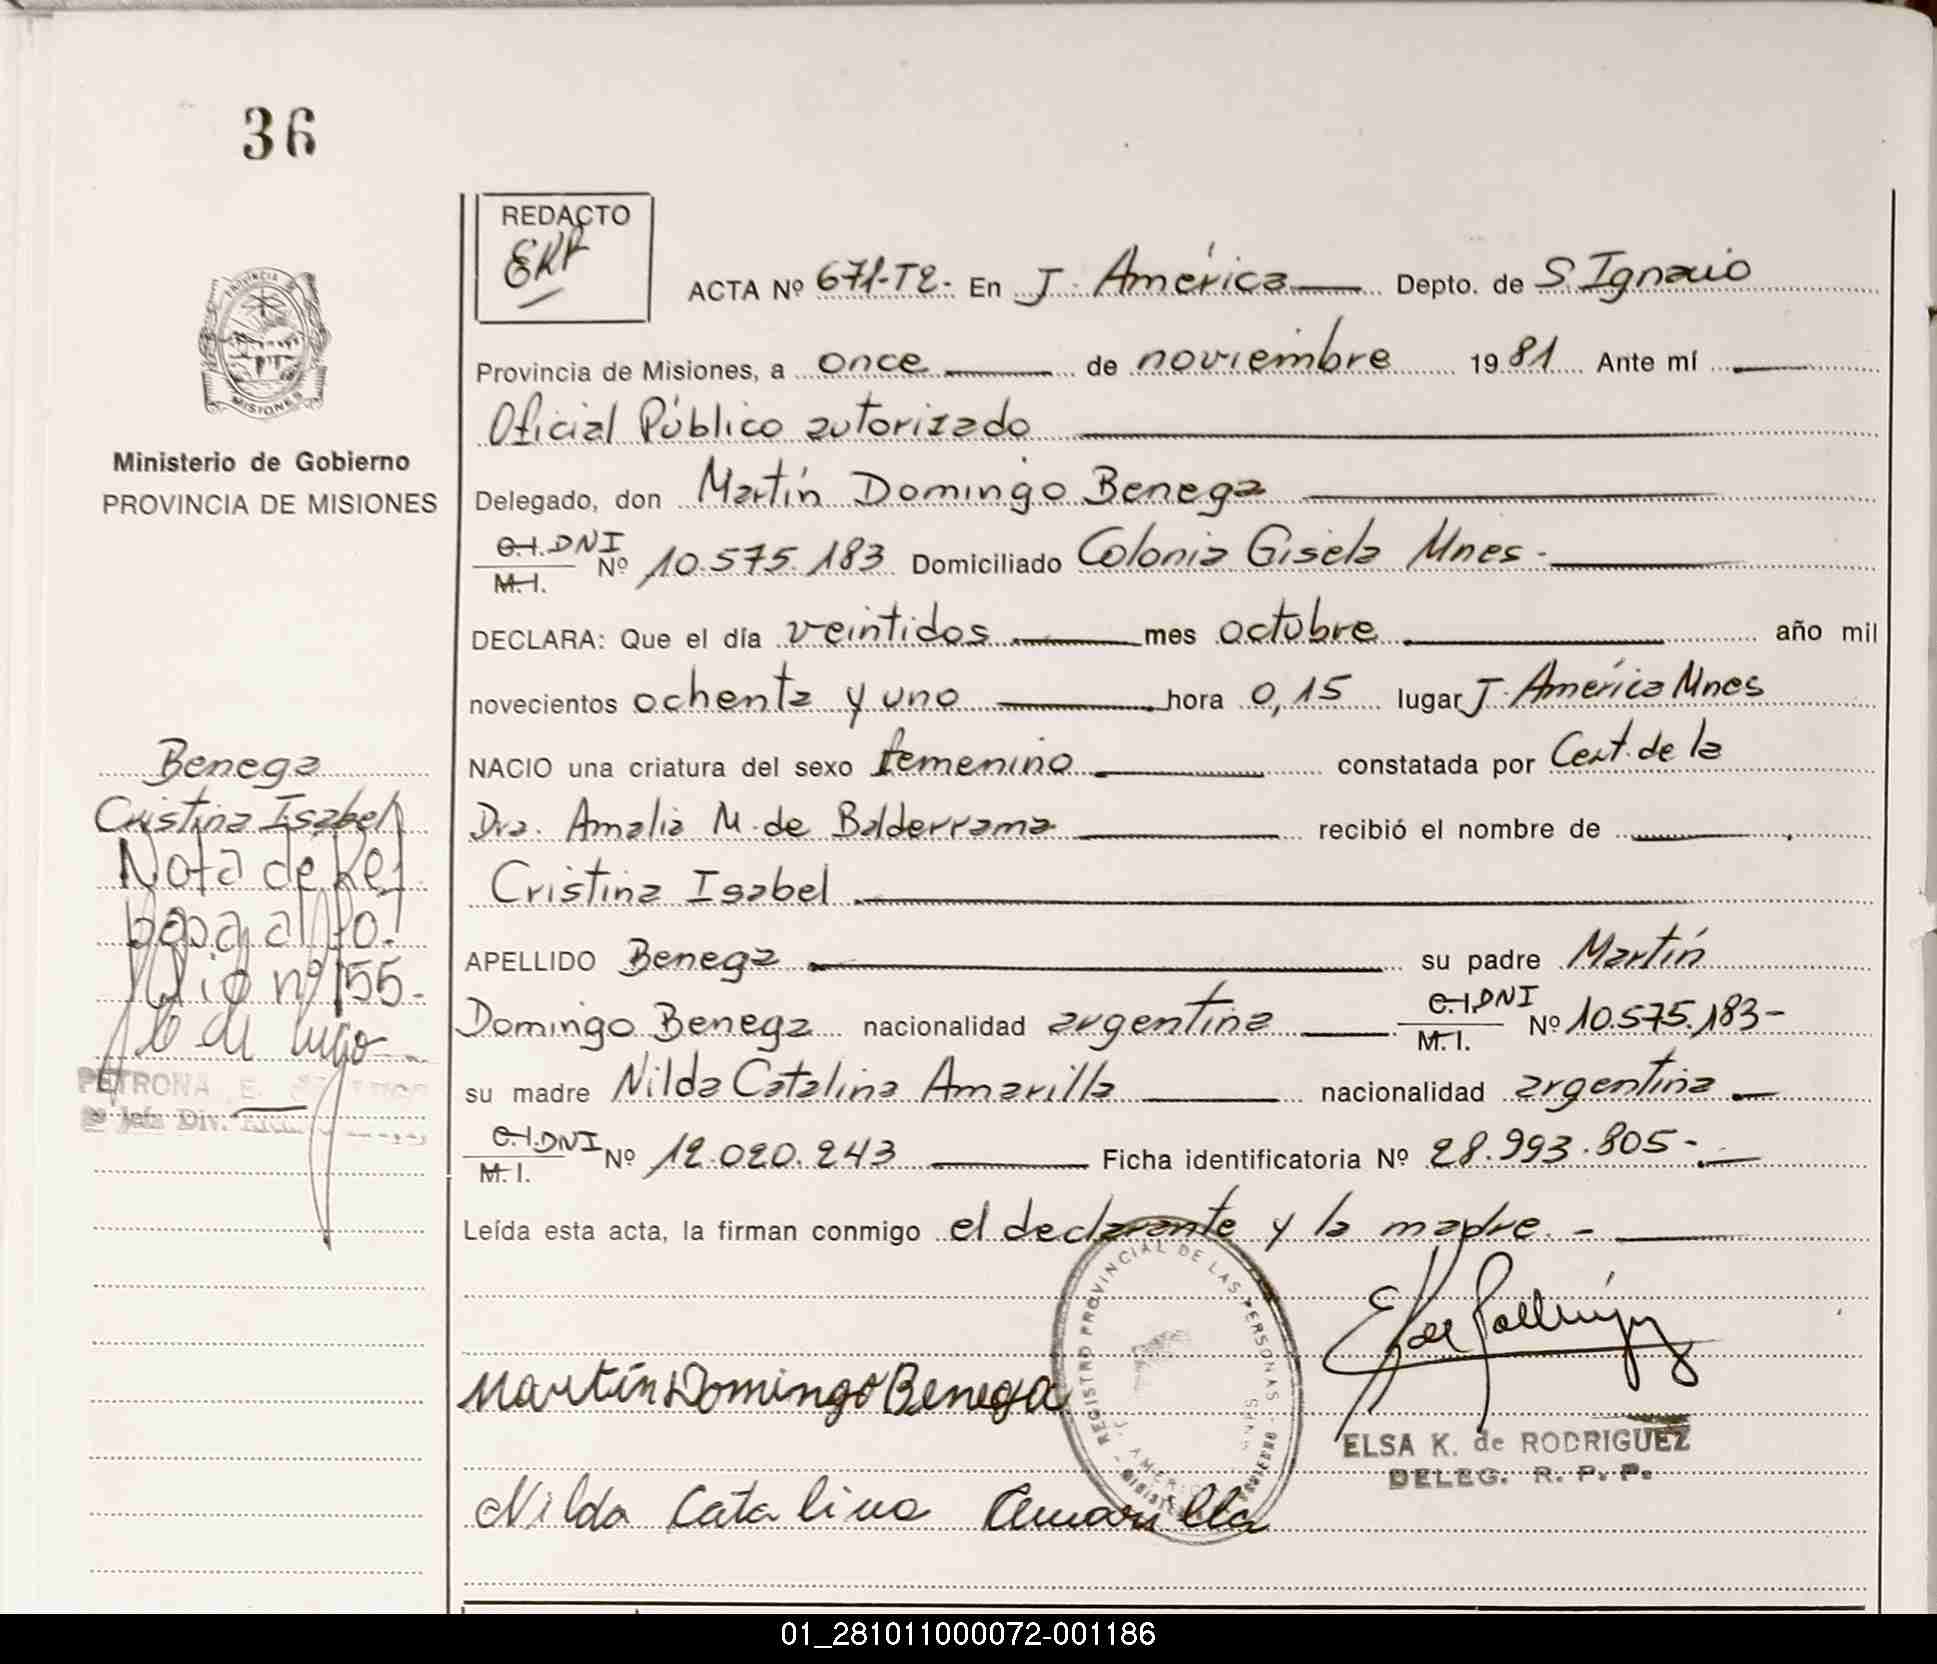 36
REDACTO
EKR
ACTA Nº 671-T2- En J. América Depto. de S. Ignacio
Provincia de Misiones, a once de noviembre 1981 Ante mí
Oficial Público autorizado
Delegado, don Martín Domingo Benega
C.I. DNI
M.I. Nº 10.575.183 Domiciliado Colonia Gisela Mnes-
DECLARA: Que el día veintidos mes octubre año mil
novecientos ochenta y uno hora 0,15 lugar J. América Mnes
NACIO una criatura del sexo femenino constatada por Cert. de la
Dra. Amalia M. de Balderrama recibió el nombre de
Cristina Isabel
APELLIDO Benega su padre Martín
Domingo Benega nacionalidad argentina C.I. DNI
M.I. Nº 10.575.183-
su madre Nilda Catalina Amarilla nacionalidad argentina
C.I. DNI
M.I. Nº 12.020.243 Ficha identificatoria Nº 28.993.805-
Leída esta acta, la firman conmigo el declarante y la madre. -
PROVINCIA
MISIONES
Ministerio de Gobierno
PROVINCIA DE MISIONES
Benega
Cristina Isabel
Nota de Ref.
pasa al fo.
nº 155-
PETRONA E.
Jefa Div.
REGISTRO PROVINCIAL DE LAS PERSONAS
Martín Domingo Benega
ELSA K. de RODRIGUEZ
DELEG. R. P. P.
Nilda Catalina Amarilla
01_281011000072-001186